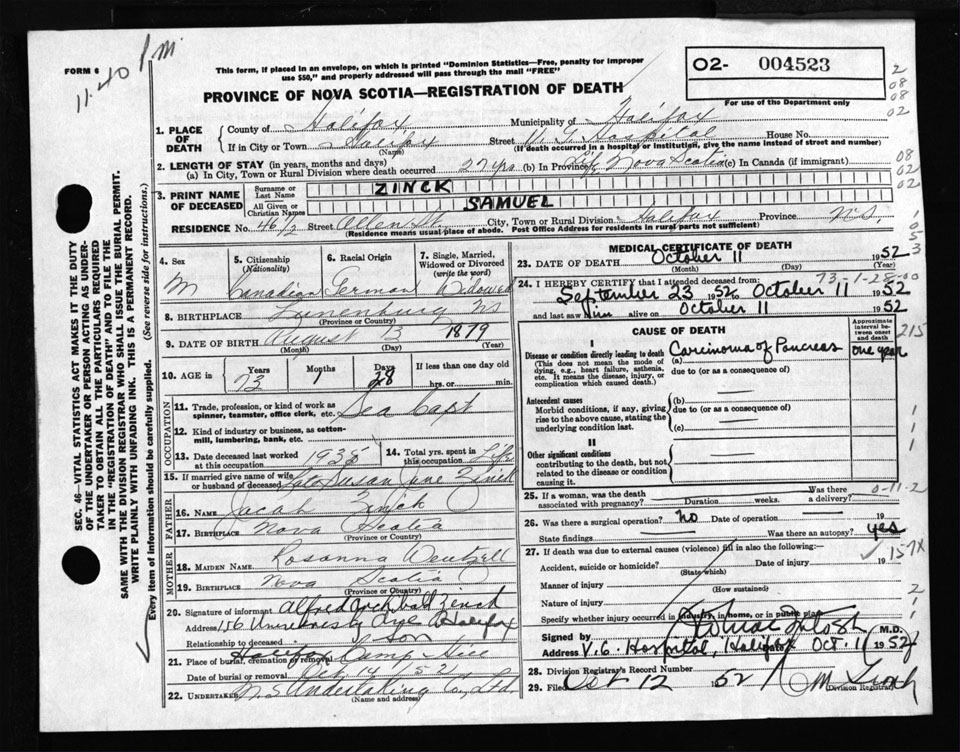 P.M.
11-40
FORM 6
This form, if placed in an envelope, on which is printed "Dominion Statistics—Free, penalty for improper
use $50," and properly addressed will pass through the mail "FREE"
PROVINCE OF NOVA SCOTIA—REGISTRATION OF DEATH
O2- 004523
For use of the Department only
2
08
08
02
1. PLACE OF DEATH
County of Halifax Municipality of Halifax
If in City or Town Halifax Street V. G. Hospital House No.
(Name) (If death occurred in a hospital or institution, give the name instead of street and number)
2. LENGTH OF STAY (in years, months and days)
(a) In City, Town or Rural Division where death occurred 27 yrs (b) In Province Life Nova Scotia (c) In Canada (if immigrant)
08
02
02
3. PRINT NAME OF DECEASED
Surname or Last Name ZINCK
All Given or Christian Names SAMUEL
RESIDENCE No. 46½ Street Allen St. City, Town or Rural Division Halifax Province N.S.
(Residence means usual place of abode. Post Office Address for residents in rural parts not sufficient)
4. Sex M
5. Citizenship (Nationality) Canadian
6. Racial Origin German
7. Single, Married, Widowed or Divorced (write the word) Widowed
8. BIRTHPLACE Lunenburg NS
(Province or Country)
9. DATE OF BIRTH August 13 1879
(Month) (Day) (Year)
10. AGE in Years 73 Months 1 Days 28 If less than one day old
hrs. or min.
OCCUPATION
11. Trade, profession, or kind of work as spinner, teamster, office clerk, etc. Sea Capt
12. Kind of industry or business, as cotton-mill, lumbering, bank, etc.
13. Date deceased last worked at this occupation 1938
14. Total yrs. spent in this occupation Life
15. If married give name of wife or husband of deceased Late Susan Jane Zinck
FATHER
16. Name Jacob Zinck
17. BIRTHPLACE Nova Scotia
(Province or Country)
MOTHER
18. MAIDEN NAME Rosanna Wentzell
19. BIRTHPLACE Nova Scotia
(Province or Country)
20. Signature of informant Alfred Archibald Zinck
Address 156 University Ave Halifax
Relationship to deceased Son
21. Place of burial, cremation or removal Halifax Camp Hill
Date of burial or removal Oct 14 1952
22. UNDERTAKER N.S. Undertaking Co., Ltd.
(Name and address)
MEDICAL CERTIFICATE OF DEATH
23. DATE OF DEATH October 11 1952
(Month) (Day) (Year)
73-1-28-00
24. I HEREBY CERTIFY that I attended deceased from:
September 23 1952 to October 11 1952
and last saw him alive on October 11 1952
CAUSE OF DEATH
Approximate interval between onset and death
I
Disease or condition directly leading to death
(This does not mean the mode of dying, e.g., heart failure, asthenia, etc. It means the disease, injury, or complication which caused death.)
(a) Carcinoma of Pancreas one year
due to (or as a consequence of)
215
Antecedent causes
Morbid conditions, if any, giving rise to the above cause, stating the underlying condition last.
(b)
due to (or as a consequence of)
(c)
II
Other significant conditions
contributing to the death, but not related to the disease or condition causing it.
25. If a woman, was the death associated with pregnancy? Duration weeks. Was there a delivery?
0-11-2
26. Was there a surgical operation? No Date of operation 19
State findings Was there an autopsy? yes
27. If death was due to external causes (violence) fill in also the following:—
157X
Accident, suicide or homicide? Date of injury 19
(State which)
Manner of injury
(How sustained)
Nature of injury
Specify whether injury occurred in industry, in home, or in public place
Signed by M.D.
Address V.G. Hospital, Halifax Oct. 11 1952
28. Division Registrar's Record Number
29. Filed Oct 12 1952
(Division Registrar)
SEC. 46—VITAL STATISTICS ACT MAKES IT THE DUTY
OF THE UNDERTAKER OR PERSON ACTING AS UNDER-
TAKER TO OBTAIN ALL THE PARTICULARS REQUIRED
IN THE "REGISTRATION OF DEATH" AND TO FILE THE
SAME WITH THE DIVISION REGISTRAR WHO SHALL ISSUE THE BURIAL PERMIT.
WRITE PLAINLY WITH UNFADING INK. THIS IS A PERMANENT RECORD.
Every item of information should be carefully supplied. (See reverse side for instructions.)